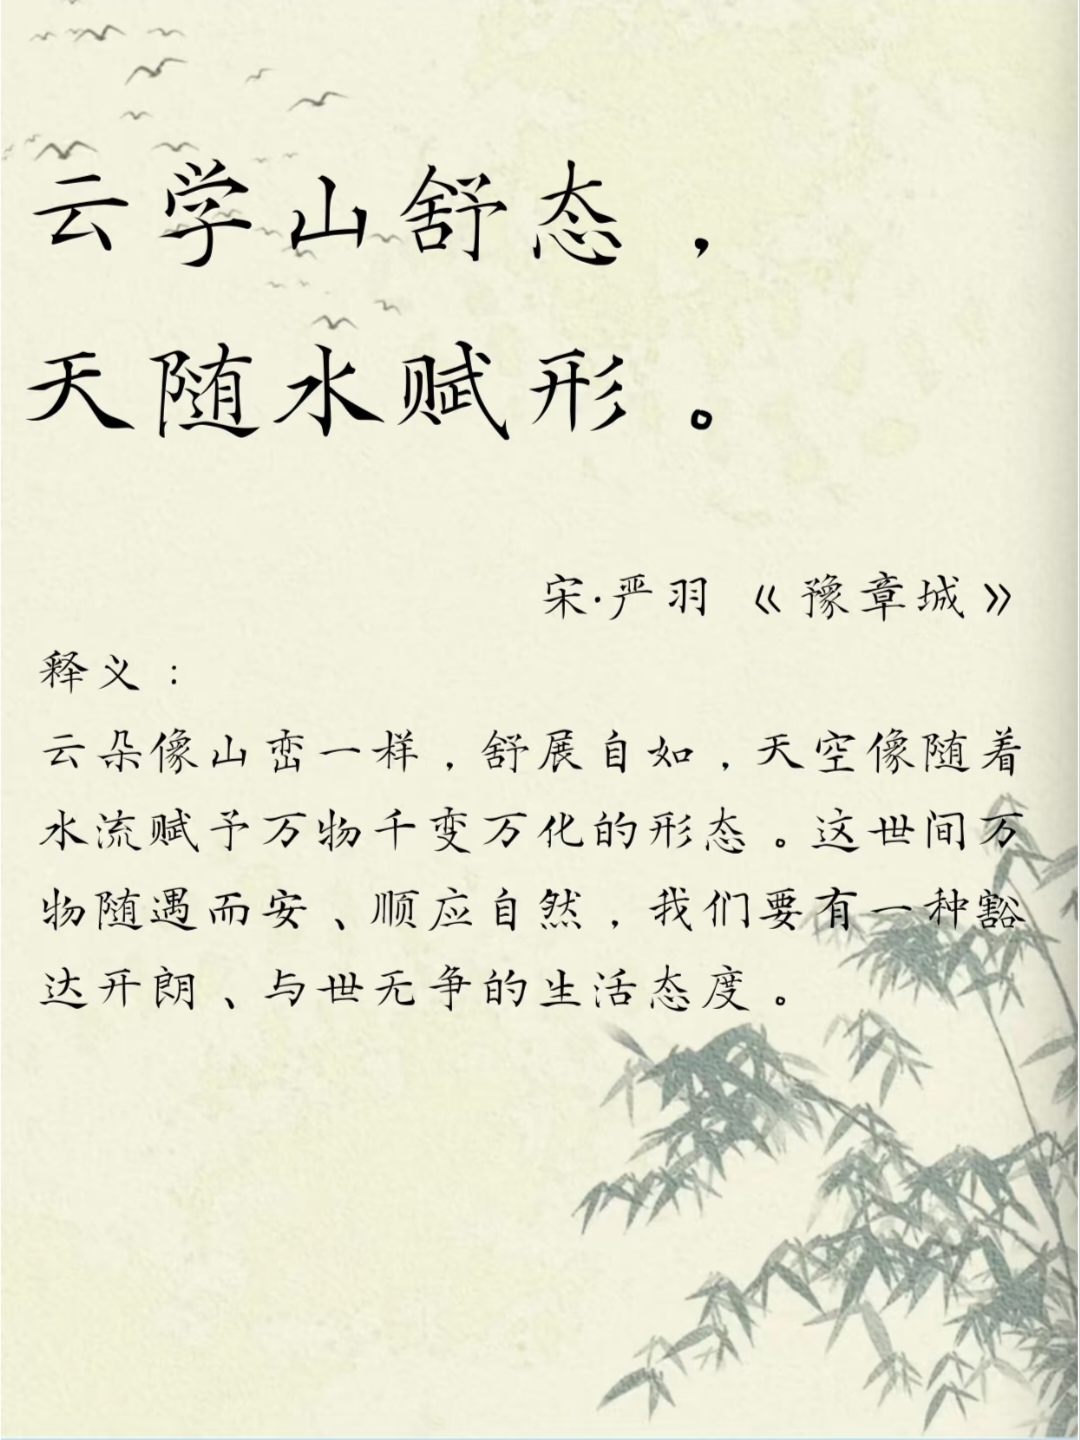 云学山舒态，
天随水赋形。
宋·严羽《豫章城》
释义：
云朵像山峦一样，舒展自如，天空像随着
水流赋予万物千变万化的形态。这世间万
物随遇而安、顺应自然，我们要有一种豁
达开朗、与世无争的生活态度。